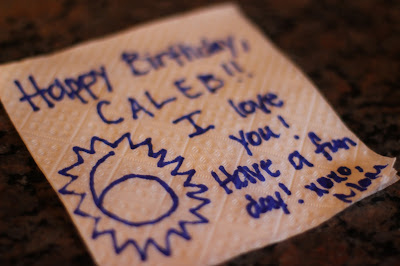 Happy Birthday,
CALEB!!
I love
you!
Have a fun
day! xoxo,
Mom